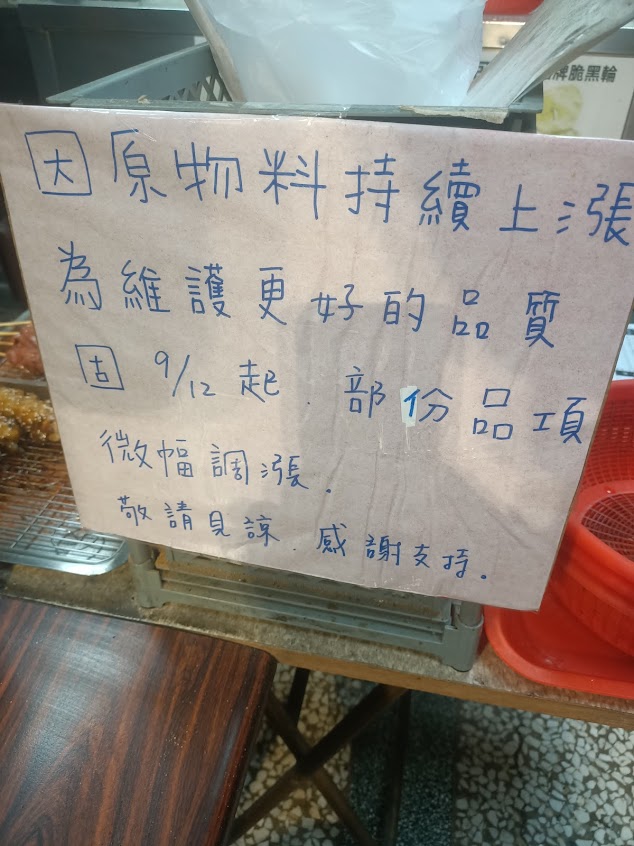 牌脆黑輪
因原物料持續上漲
為維護更好的品質
固 9/12 起. 部份品項
微幅調漲.
敬請見諒. 感謝支持.